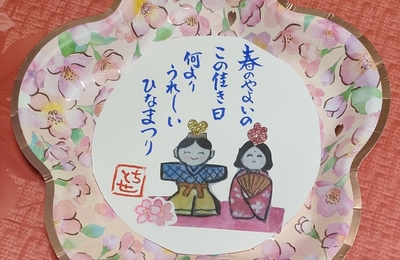 春のやよいの
この佳き日
何より
うれしい
ひなまつり
ちとせ